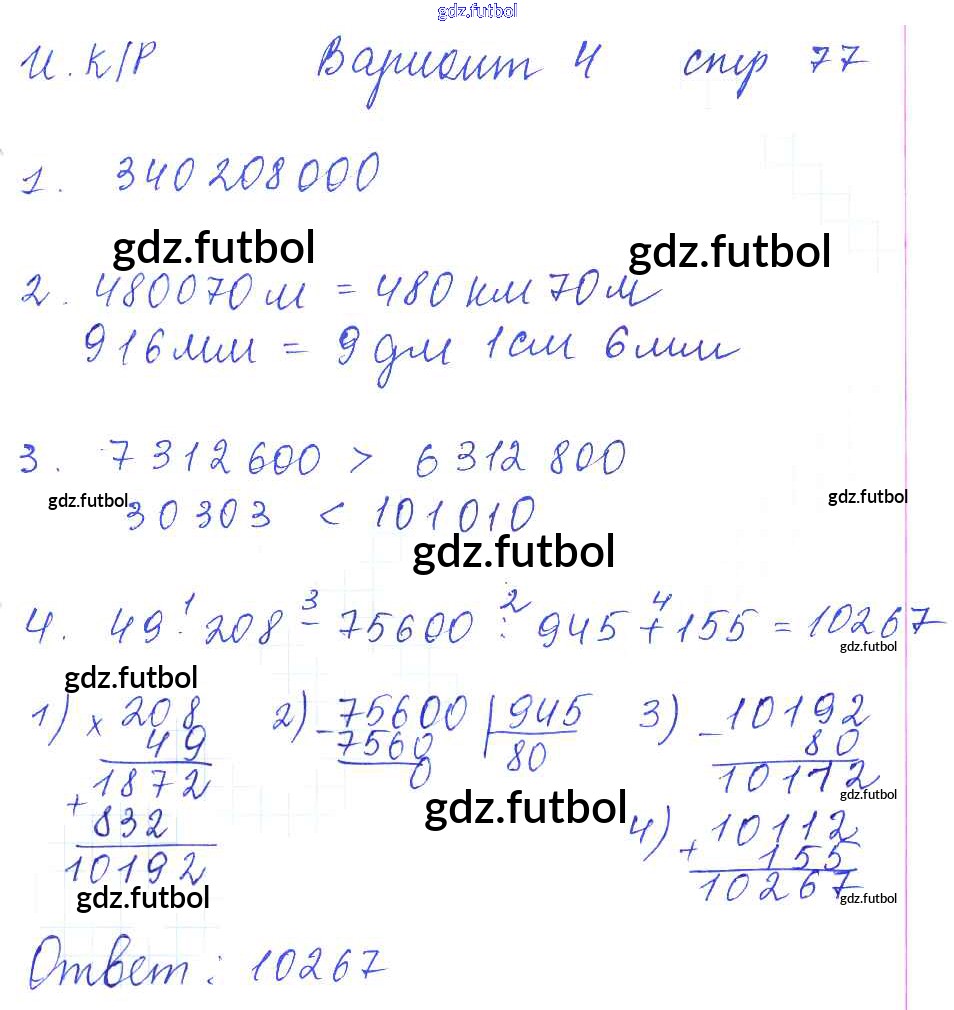 gdz.futbol
И. К/Р Вариант 4 стр 77
1. 340 208 000
gdz.futbol gdz.futbol
2. 480070 м = 480 км 70 м
916 мм = 9 дм 1 см 6 мм
3. 7 312 600 > 6 312 800
gdz.futbol 30 303 < 101 010 gdz.futbol
gdz.futbol
1 3 2 4
4. 49 · 208 - 75600 : 945 + 155 = 10267
gdz.futbol
gdz.futbol
1) × 208 2) - 75600 | 945 3) - 10192
49 7560 80 80
1872 0 10112
gdz.futbol
+ 832 gdz.futbol 4) + 10112
155
10192 10267
gdz.futbol gdz.futbol
Ответ: 10267